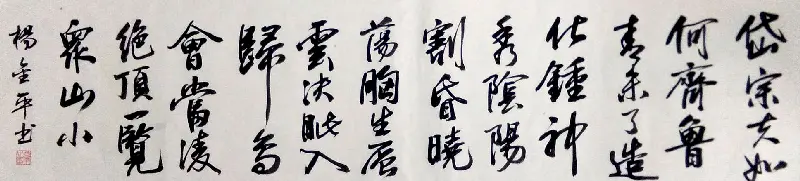 岱宗夫如
何齊魯
青未了造
化鍾神
秀陰陽
割昏曉
蕩胸生層
雲決眦入
歸鳥
會當凌
絕頂一覽
眾山小
楊金平书